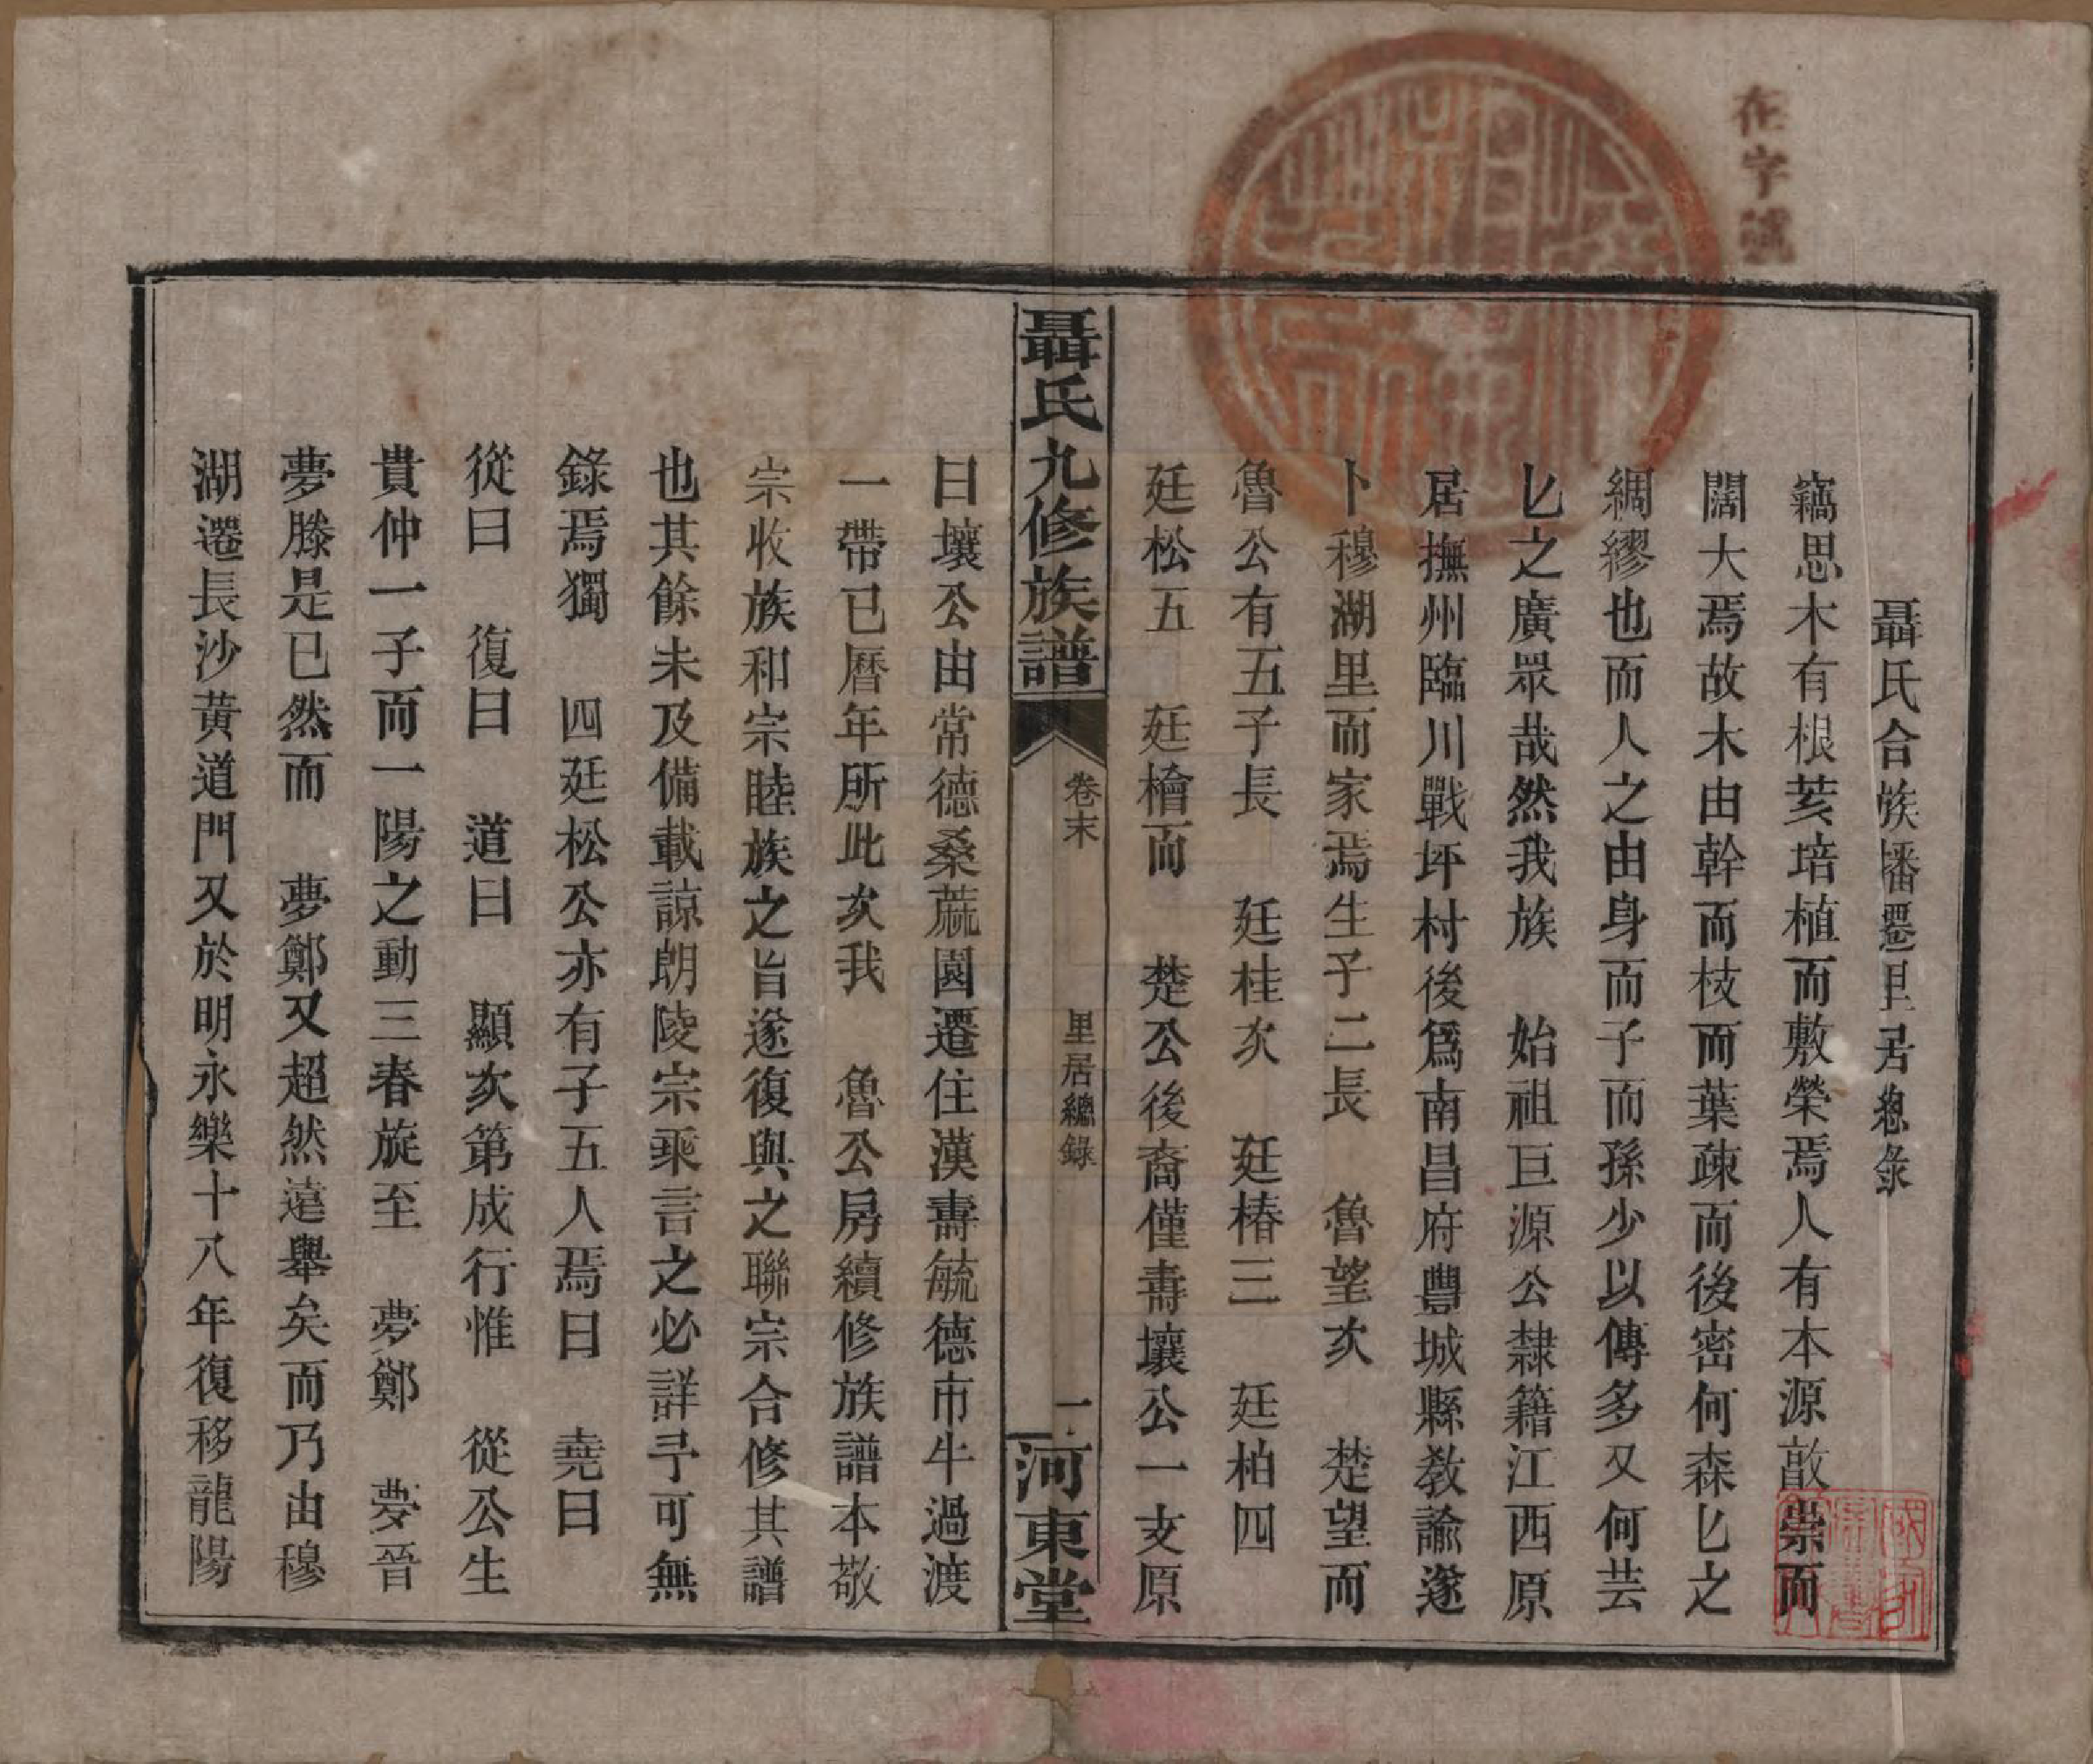 在字號
聶氏合族播遷里居總錄
竊思木有根荄培植而敷榮焉人有本源敵崇而
闊大焉故木由幹而枝而葉疎而後密何森匕之
綢繆也而人之由身而子而孫少以傳多又何芸
匕之廣眾哉然我族 始祖巨源公隸籍江西原
居撫州臨川戰坪村後爲南昌府豐城縣教諭遂
卜穆湖里而家焉生子二長 魯望次 楚望而
魯公有五子長 廷桂次 廷椿三 廷柏四
廷松五 廷檜而 楚公後裔僅壽壤公一支原
聶氏九修族譜 卷末 里居總錄 一 河東堂
日壤公由常德桑蔴園遷住漢壽毓德市牛過渡
一帶已曆年所此次我 魯公房續修族譜本敬
宗收族和宗睦族之旨遂復與之聯宗合修其譜
也其餘未及備載諒朗陵宗乘言之必詳予可無
錄焉獨 四廷松公亦有子五人焉曰 堯曰
從曰 復曰 道曰 顯次第成行惟 從公生
貴仲一子而一陽之動三春旋至 夢鄭 夢晉
夢滕是已然而 夢鄭又超然遠舉矣而乃由穆
湖遷長沙黃道門又於明永樂十八年復移龍陽